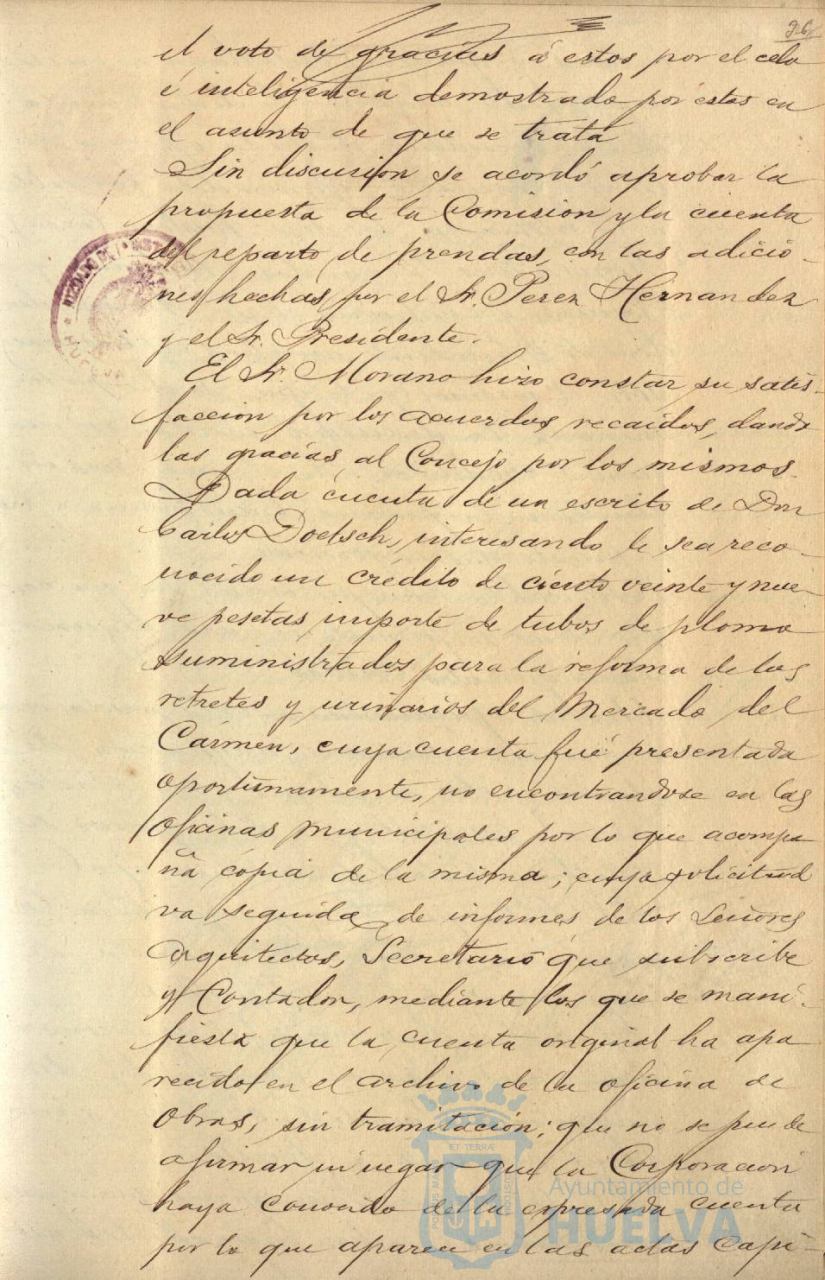 26
el voto de gracias á estos por el celo
é inteligencia demostrada por estos en
el asunto de que se trata
Sin discusion se acordó aprobar la
propuesta de la Comision y la cuenta
del reparto de prendas, con las adicio-
nes hechas por el Sr. Perez Hernandez
y el Sr. Presidente.
El Sr. Morano hizo constar su satis-
faccion por los acuerdos recaidos, dando
las gracias al Concejo por los mismos.
Dada cuenta de un escrito de Don
Carlos Doetsch, interesando le sea reco-
nocido un crédito de ciento veinte y nue-
ve pesetas, importe de tubos de plomo
suministrados para la reforma de los
retretes y urinarios del Mercado del
Cármen, cuya cuenta fué presentada
oportunamente, no encontrandose en las
oficinas municipales por lo que acompa
ña copia de la misma; cuya solicitud
va seguida de informes de los Señores
Arquitectos, Secretario que subscribe
y Contador, mediante los que se mani-
fiesta que la cuenta original ha apa
recido en el archivo de la oficina de
Obras, sin tramitación; que no se puede
afirmar ni negar que la Corporacion
haya conocido de la expresada cuenta
por lo que aparece en las actas Capi-
Ayuntamiento de
HUELVA